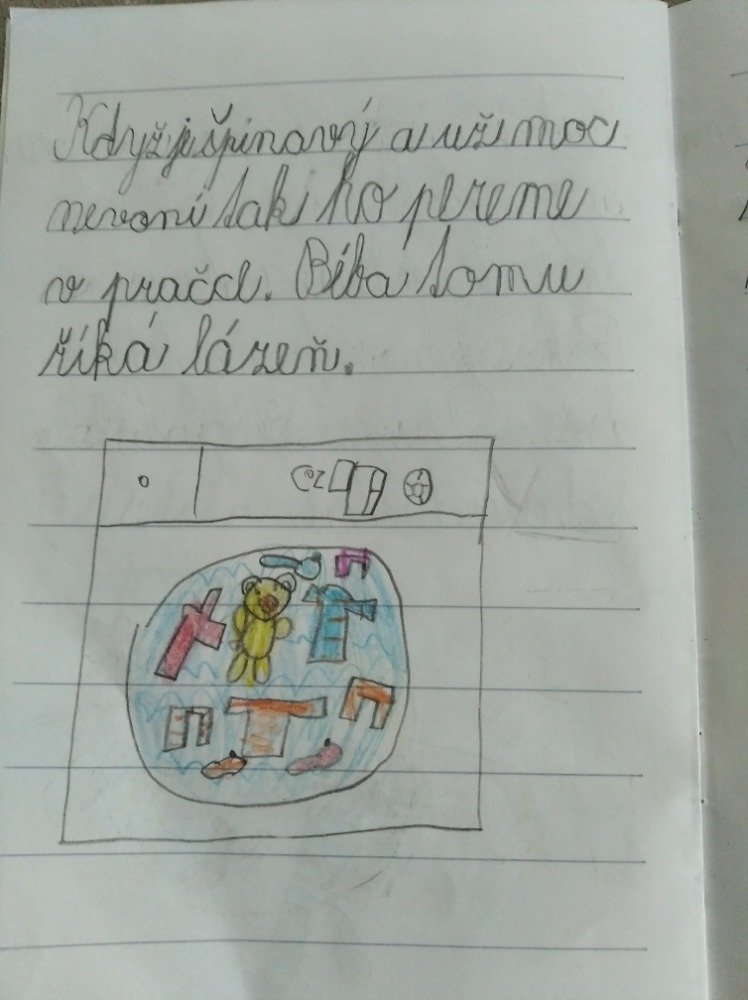 Když je špinavý a už moc
nevoní tak ho pereme
v pračce. Bíba tomu
říká lázeň.